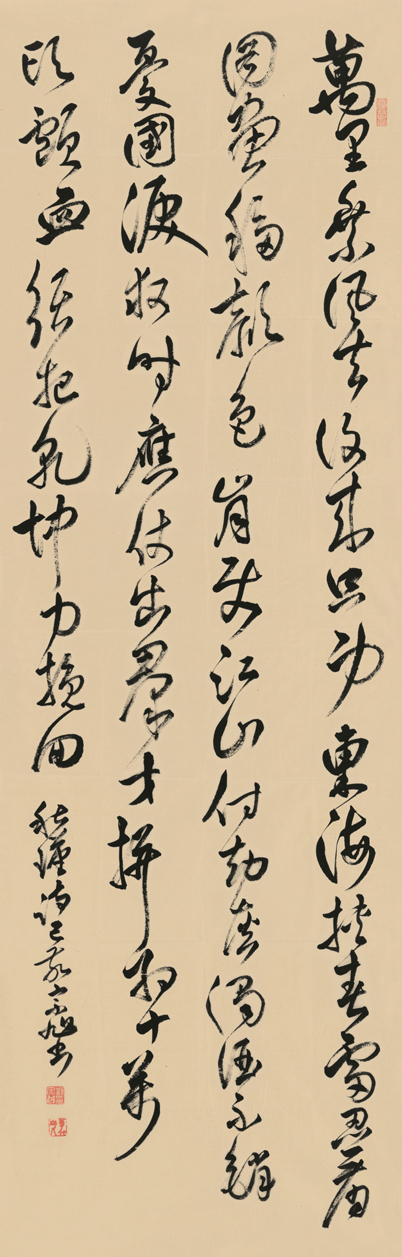 萬里乘風去復來只身東海挾春雷忍看
圖畫移顏色肯使江山付劫灰濁酒不銷
憂國淚救時應仗出羣才拼將十萬
頭顱血須把乾坤力挽回
秋瑾詩己亥書